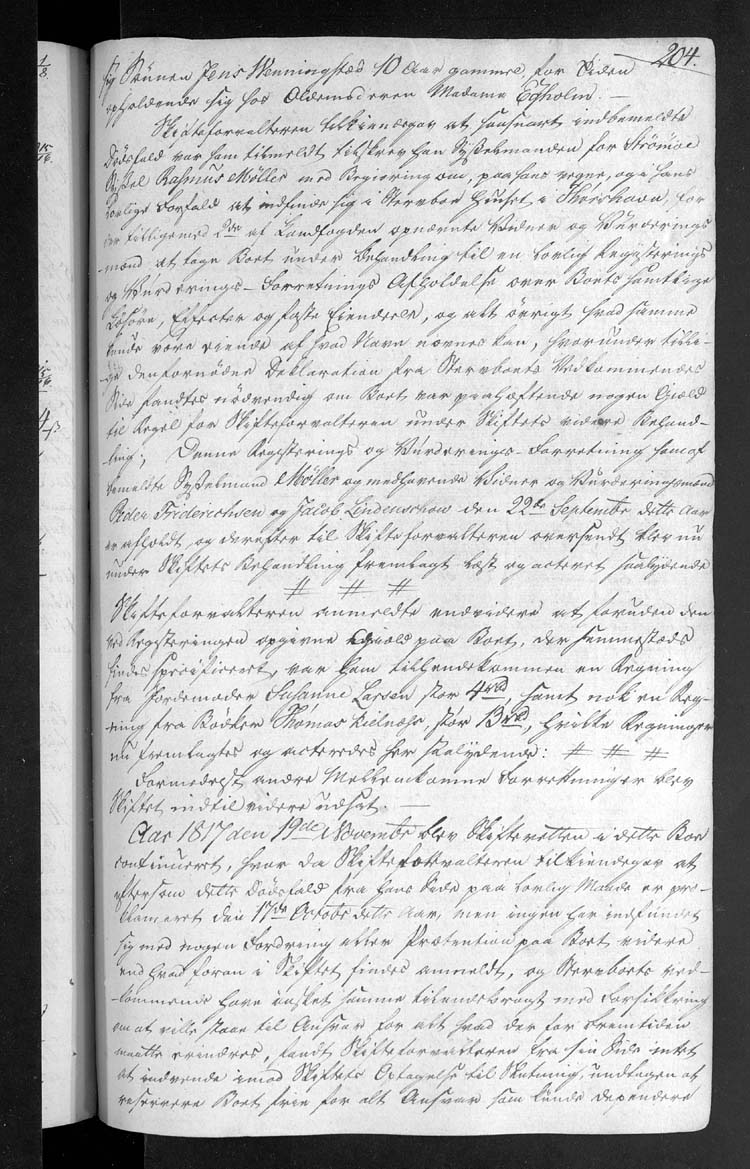 204.
Sønnen Jens Wenningstæd 10 Aar gammel, for Tiden
opholdende sig hos Oldemoderen Madame Egholm. —
Skifteforvalteren tilkiendegav at saasnart indbemeldte
Dødsfald var ham tilmeldt tilskrev han Sysselmanden for Strömöe
Syssel Rasmus Møller med Begiering om, paa hans vegne, og i hans
lovlige Forfald at indfinde sig i Sterboe Huuset i Thorshavn, for
der tilligemed 2de af Landfogden opnævnte Vidner og Vurderings
mænd at tage Boet under Behandling til en lovlig Registerings
og Vurderings-Forretnings Afholdelse over Boets samtlige
Løsøre, Effecter og faste Eiendele, og alt øvrigt hvad samme
kunde være eiende af hvad Navn nævnes kan, hvorunder tilli-
ge den fornødne Deklaration fra Sterboets Vedkommendes
Side fandtes nødvendig om Boet var paahæftende nogen Giæld
til Regel for Skifteforvalteren under Skiftets videre Behand-
ling; Denne Registerings og Vurderings-Forretning som af
bemeldte Sysselmand Møller og medhavende Vidner og Vurderingsmænd
Peder Friderichsen og Jacob Lindenschow den 22de Septembr dette Aar
er afholdt, og derefter til Skifteforvalteren oversendt blev nu
under Skiftets Behandling fremlagt læst og acteret saalydende
# # #
Skifteforvalteren anmeldte endvidere at foruden den
ved Registeringen opgivne Giæld paa Boet, der sammestæds
findes specificeret, var ham tilhændekommen en Regning
fra Jordemoder Susanne Larsen stor 4rbd, samt nok en Reg-
ning fra Bødker Thomas Kielnæss, stor 13rbd, hvilke Regninger
nu fremlagtes og acteredes her saalydende: # # #
Formedelst andre Mellemkomne Forretninger blev
Skiftet indtil videre udsat. —
Aar 1817 den 19de Novembr blev Skifteretten i dette Boe
continueret, hvor da Skifteforvalteren tilkiendegav at
eftersom dette Dødsfald fra hans Side paa lovlig Maade er pro-
clameret den 17de Octobr dette Aar, men ingen har indfundet
sig med nogen Fordring eller Prætention paa Boet videre
end hvad foran i Skiftet findes anmeldt, og Sterboets ved-
kommende have ønsket samme tilendebragt med Forsikkring
om at ville staae til Ansvar for alt hvad der for Fremtiden
maatte erindres, fandt Skifteforvalteren fra sin Side intet
at indvende imod Skiftets Optagelse til Slutning, undtagen at
reservere Boet frie for alt Ansvar som kunde dependere